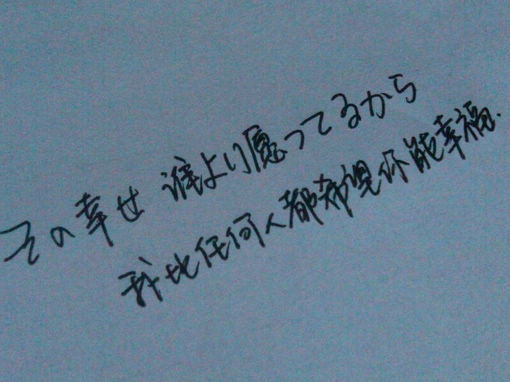 その幸せ 誰より愿ってるから
我比任何人都希望你能幸福.